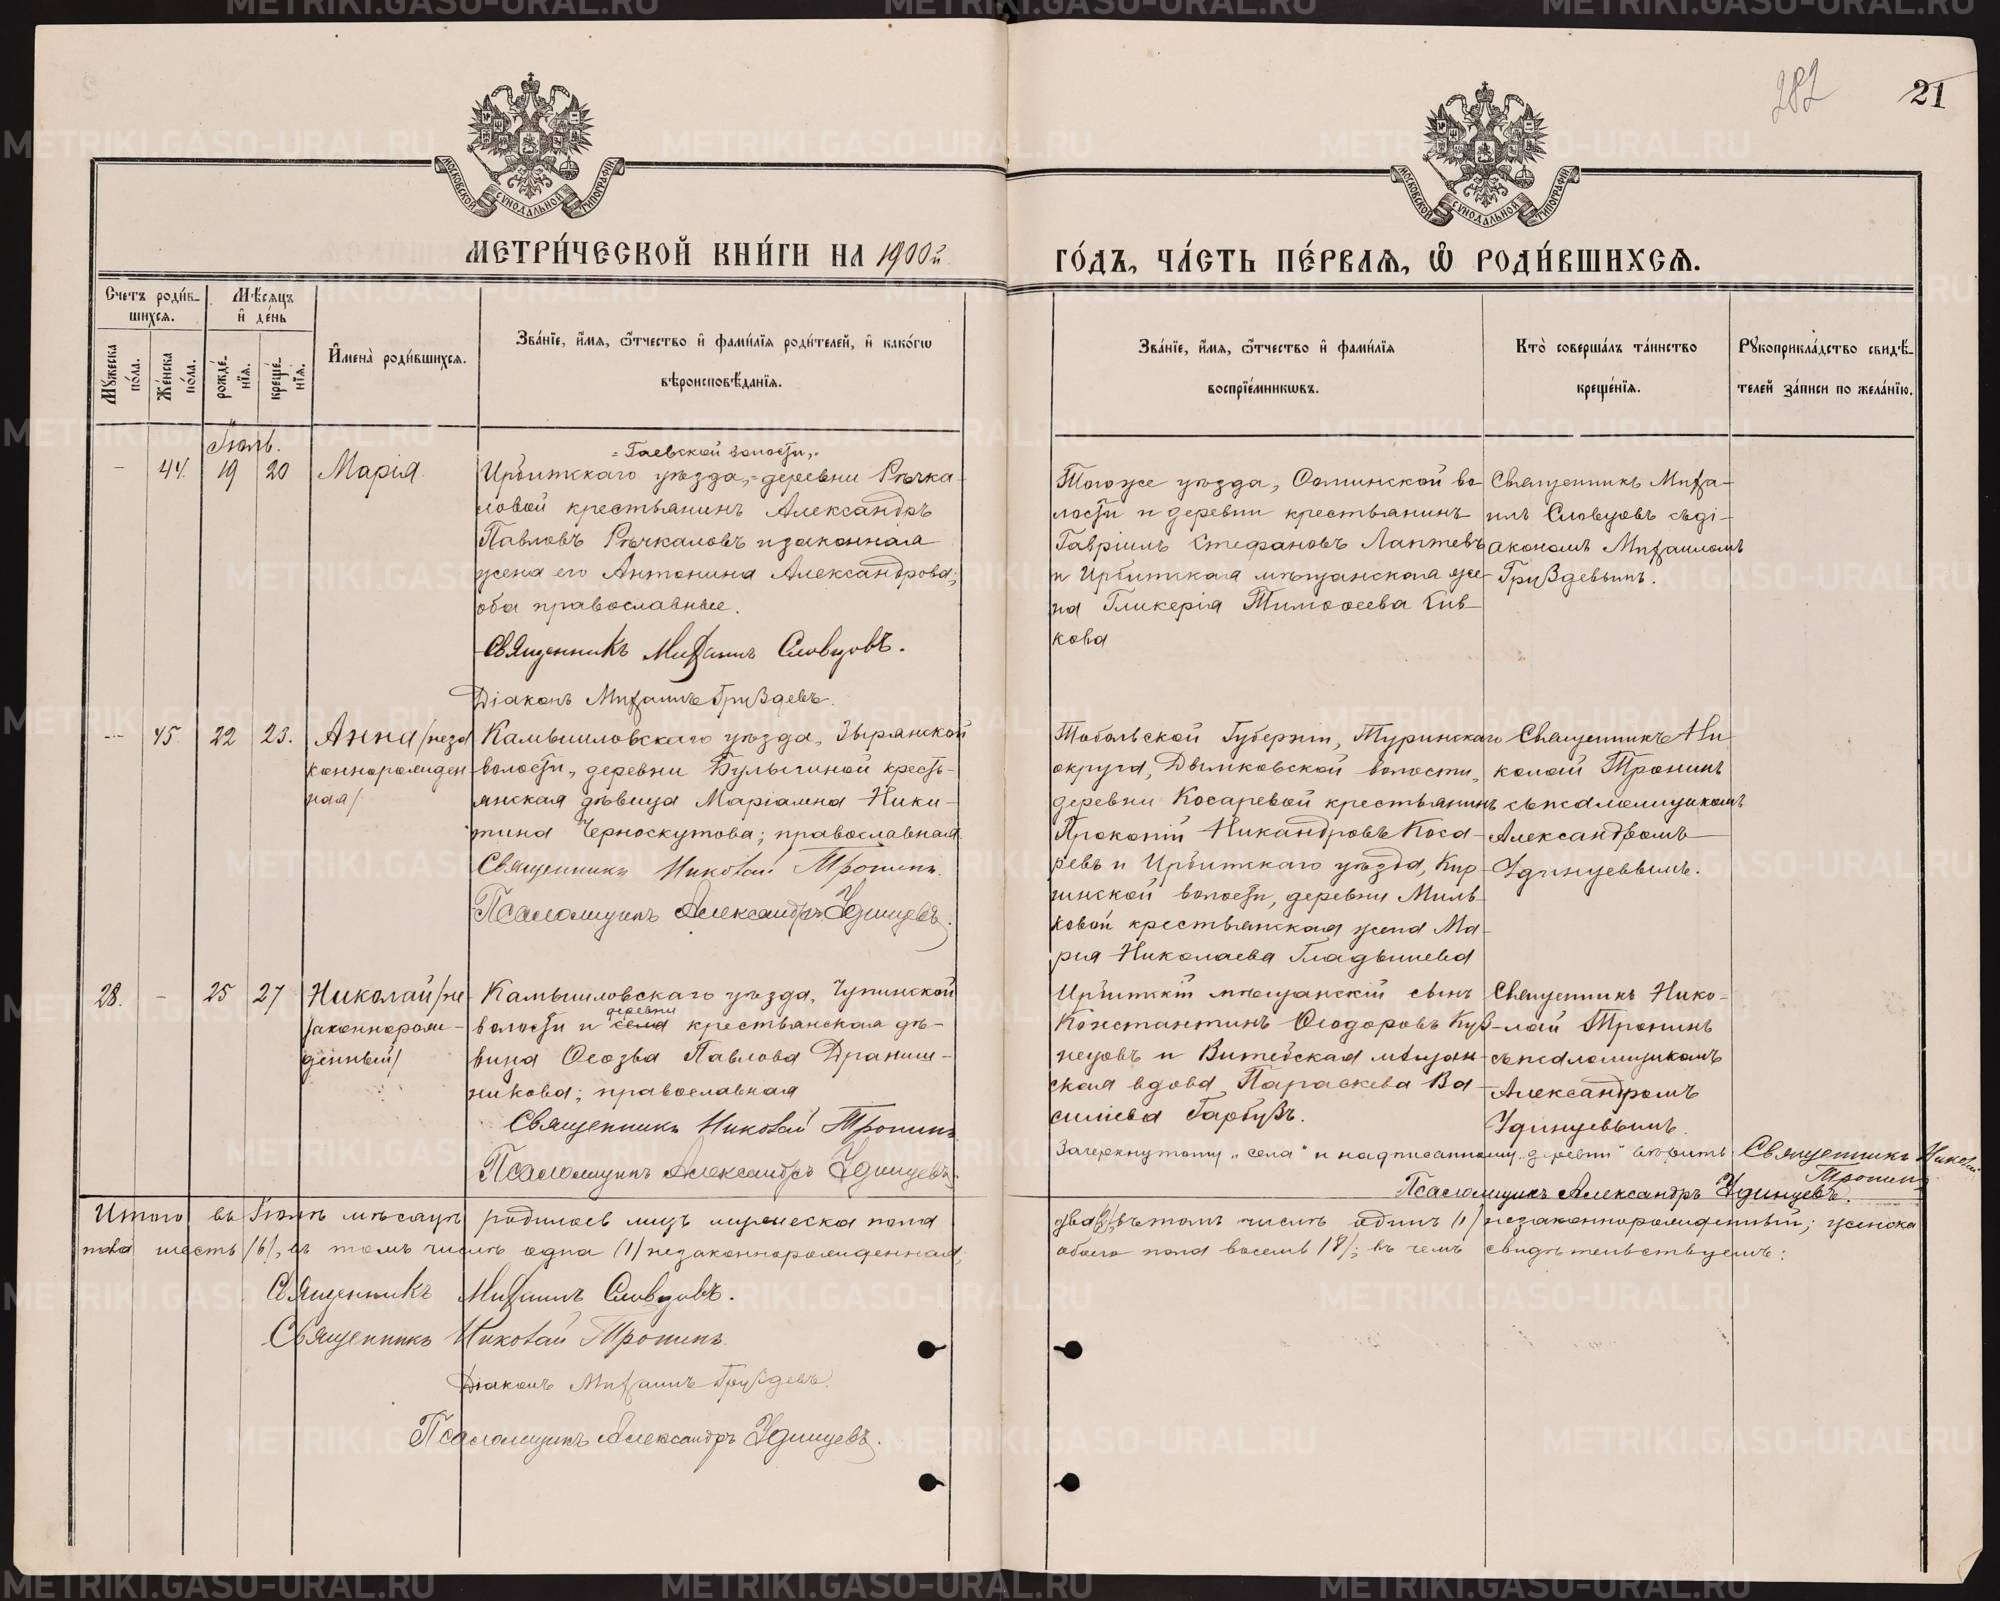 282
21
МОСКОВСКОЙ СУНОДАЛЬНОЙ ТИПОГРАФІИ
МОСКОВСКОЙ СУНОДАЛЬНОЙ ТИПОГРАФІИ
МЕТРИ́ЧЕСКОЙ КНИ́ГИ НА 1900й ГО́ДЪ, ЧА́СТЬ ПЕ́РВАѦ, Ѽ РОДИ́ВШИХСѦ.
Счетъ роди́в-
шихсѧ.
Мѣ́сѧцъ
и҆ де́нь
Мꙋ́жеска по́ла.
Же́нска по́ла.
рожде́-
нїѧ.
креще́-
нїѧ.
И҆мена̀ роди́вшихсѧ.
Зва́нїе, и҆́мѧ, ѻ҆́тчество и҆ фами́лїѧ роди́телей, и҆ како́гѡ
вѣроисповѣ́данїѧ.
Зва́нїе, и҆́мѧ, ѻ҆́тчество и҆ фами́лїѧ
воспрїе́мникѡвъ.
Кто̀ соверша́лъ та́инство
креще́нїѧ.
Рꙋкоприкла́дство свидѣ́-
телей за́писи по жела́нїю.
Іюль.
— 44. 19 20 Марія.
= Гаевской волости,
Ирбитскаго уѣзда,= деревни Рѣчка-
ловой крестьянинъ Александръ
Павловъ Рѣчкаловъ и законная
жена его Антонина Александрова;
оба православные.
Священникъ Михаилъ Словцовъ.
Діаконъ Михаилъ Груздевъ.
Тогоже уѣзда, волости и деревни крестьянинъ
Гавріилъ Стефановъ Лаптевъ
и Ирбитская мѣщанская же-
на Гликерія Тимоѳеева
кова
Священникъ Миха-
илъ Словцовъ съ ді-
акономъ Михаиломъ
Груздевымъ.
— 45 22 23. Анна /неза
коннорожден
ная/
Камышловскаго уѣзда, Зырянской
волости, деревни Булыгиной кресть-
янская дѣвица Маріамна Ники-
тина Черноскутова; православная
Священникъ Николай Тронинъ.
Псаломщикъ Александръ Удинцевъ.
Тобольской Губерніи, Туринскаго
округа, Дымковской волости,
деревни Косаревой крестьянинъ
Прокопій Никандровъ Коса-
ревъ и Ирбитскаго уѣзда, Кир-
гинской волости, деревни Миль-
ковой крестьянская жена Ма-
рія Николаева Гладышева
Священникъ Ни
колай Тронинъ
съ псаломщикомъ
Александромъ
Удинцевымъ.
28. — 25 27 Николай /не
законнорож-
денный/
Камышловскаго уѣзда, Чупинской
деревни
волости и села крестьянская дѣ-
вица Павлова Драниш-
никова; православная
Священникъ Николай Тронинъ
Псаломщикъ Александръ Удинцевъ.
Ирбитскій мѣщанскій сынъ
Константинъ Ѳеодоровъ Куз-
нецовъ и мѣщан-
ская вдова Параскева Ва-
силіева Гарбузъ.
Священникъ Нико-
лай Тронинъ
съ псаломщикомъ
Александромъ
Удинцевымъ.
Зачеркнутому „села" и надписанному „деревни" вѣрить. Священникъ Николай
Тронинъ
Псаломщикъ Александръ Удинцевъ.
Итого въ Іюлѣ мѣсяцѣ родилось мужеска пола два /2/, въ томъ числѣ одинъ /1/ незаконнорожденный; женска
пола шесть /6/, въ томъ числѣ одна /1/ незаконнорожденная, обоего пола восемь /8/; въ чемъ свидѣтельствуемъ:
Священникъ Михаилъ Словцовъ.
Священникъ Николай Тронинъ.
Діаконъ Михаилъ Груздевъ.
Псаломщикъ Александръ Удинцевъ.
METRIKI.GASO-URAL.RU